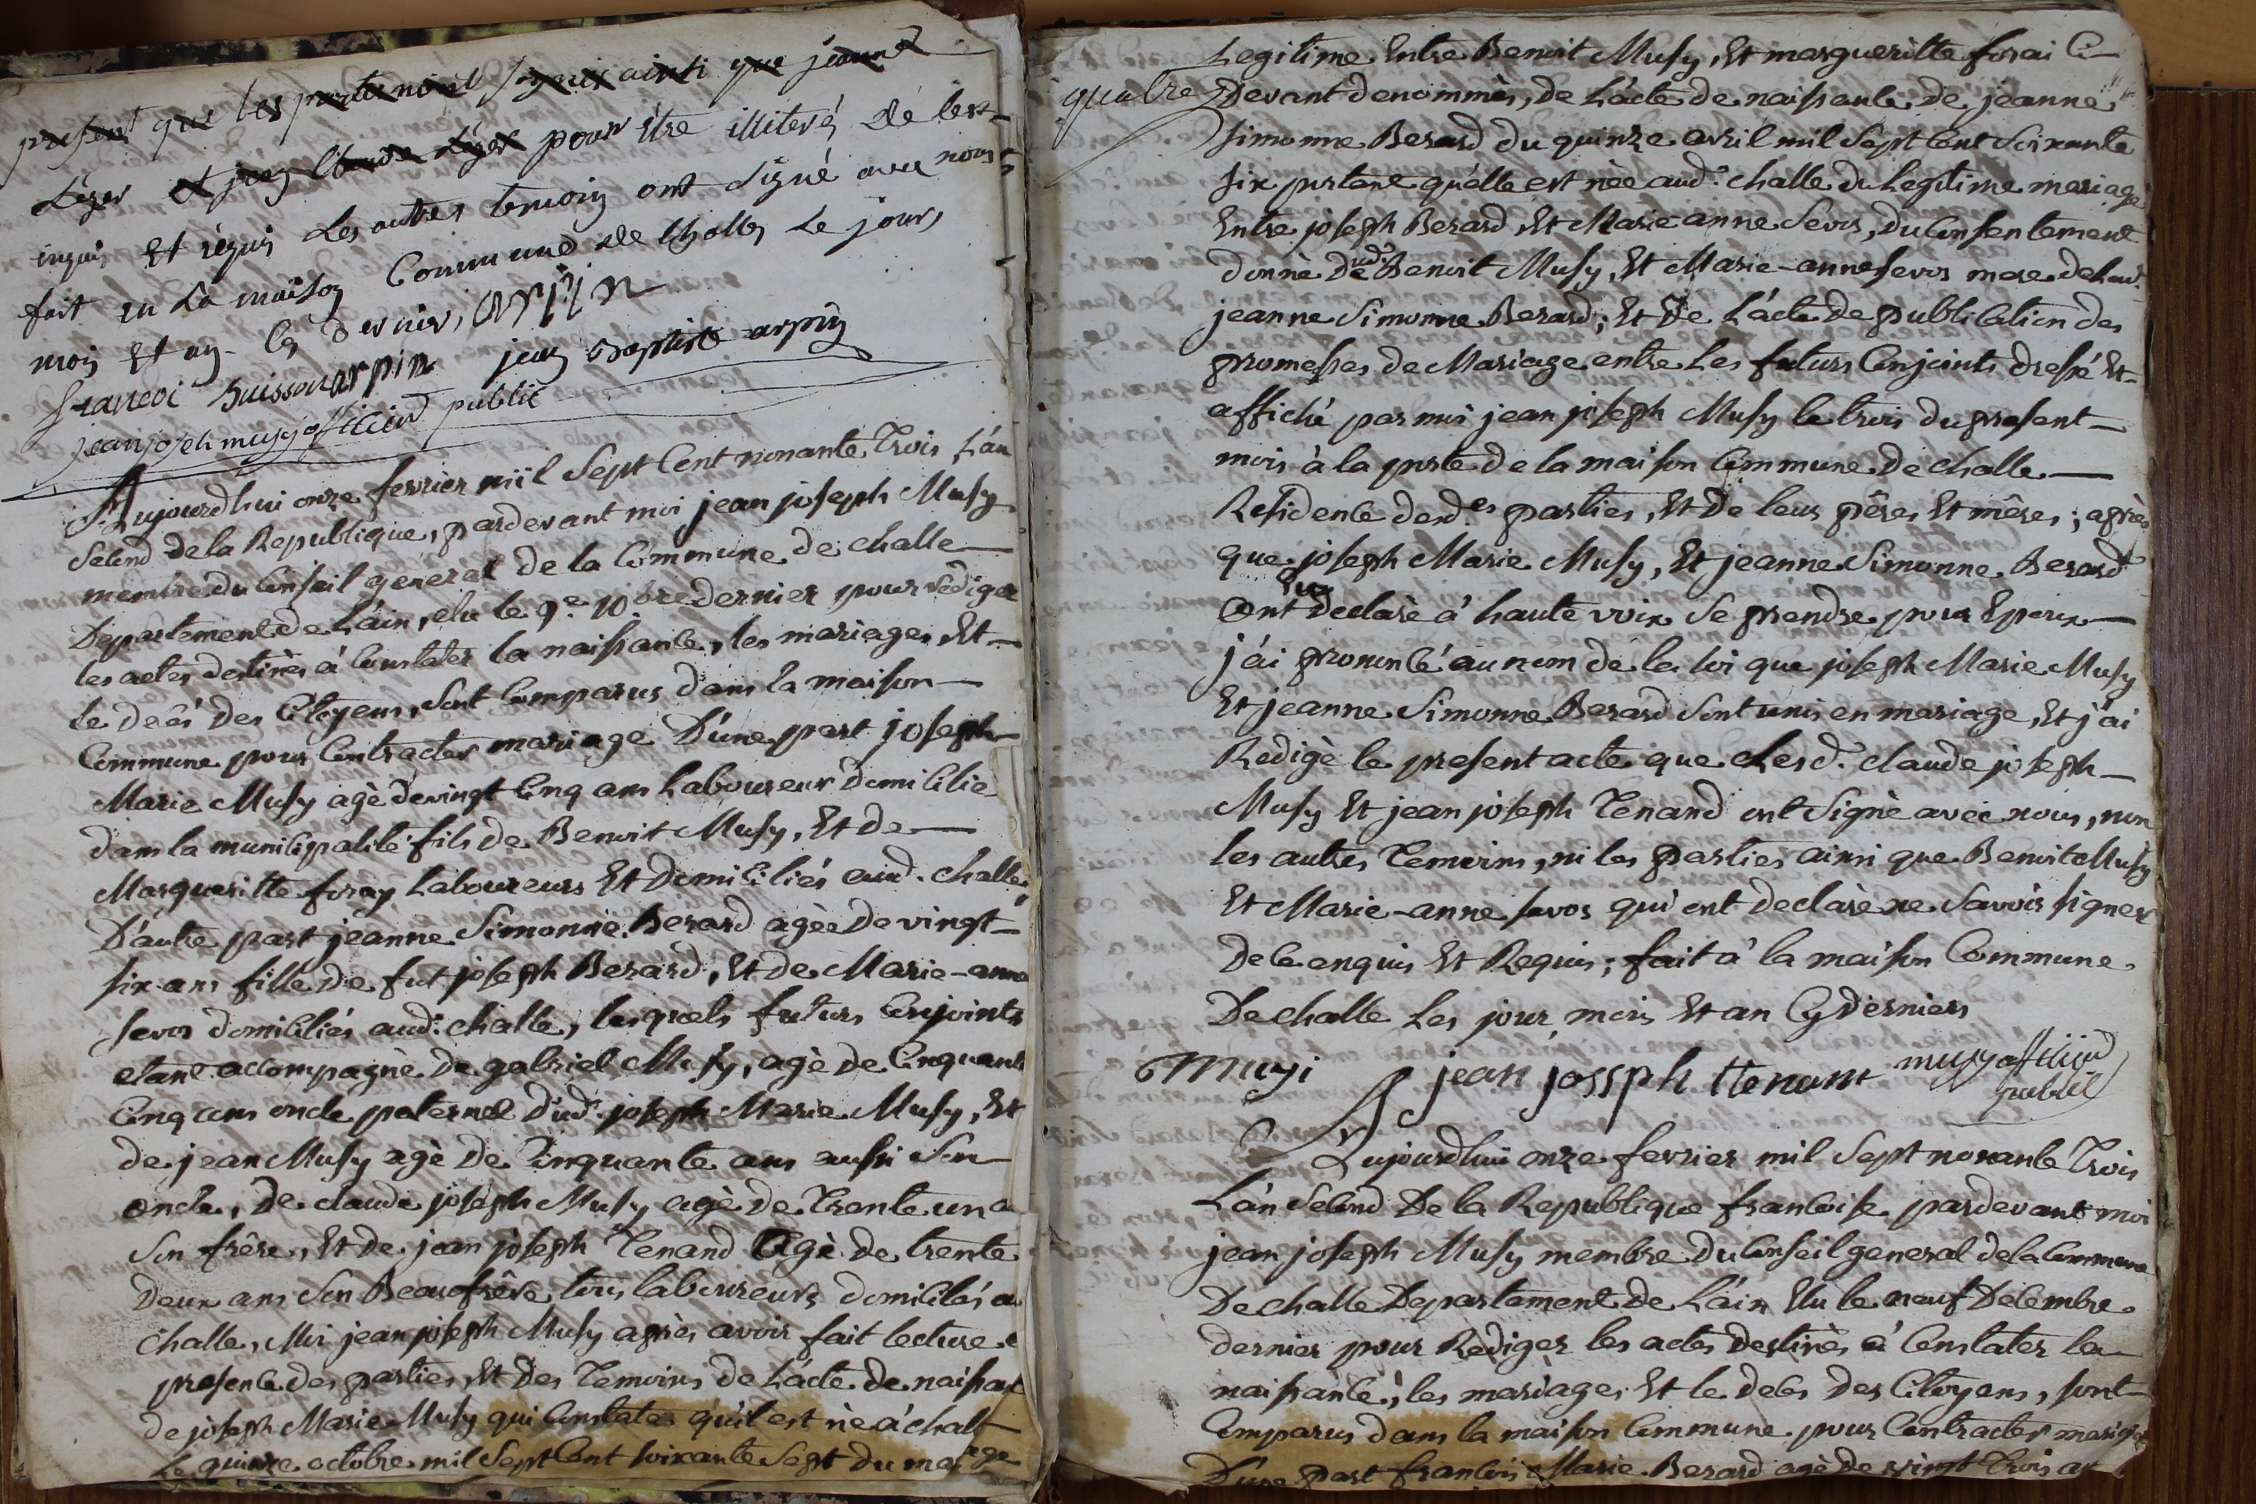 present que les parte nont signé ainsi que jeanne
Léger et jean Claude Léger pour être illiteré de ce
enquis et requis Les autres temoins ont signé avec nous
fait en La maison Commune de Challes Le jour,
mois Et an - Cy dernier, arpin
francoi Buisson arpin jean Baptiste arpin
jean joseh musy officier public
Aujourdhui onze fevrier mil Sept Cent nonante Trois L'an
Second de la Republique, pardevant moi jean joseph Musy
membre du Conseil general de la Commune de challe
Departement de L'ain, elu le 9.e 10bre dernier pour rediger
les actes destinés à Constater la naissance, les mariages, Et
le decés des Citoyens, sont Comparus dans la maison
Commune pour Contracter mariage D'une part joseph
Marie Musy agè de vingt Cinq ans Laboureur Domicilie
dans la municipalité fils de Benoit Musy, Et de
Margueritte foray Laboureurs Et Domiciliés aud. challe,
D'autre part jeanne Simonne Berard agèe De vingt
six ans fille de fut joseph Berard, Et de Marie-anne
sevos domiciliés aud. challe, lesquels futurs Conjoints
etant accompagné de gabriel Musy, agè de Cinquante
Cinq ans oncle paternel dud. joseph Marie Musy, Et
de jean Musy agè de Cinquante ans aussi Son
oncle, De claude joseph Musy agè de Trente un a
Son frêre, Et de jean joseph Tenand agè de trente
Deux ans Son Beaufrêre, tous laboureurs domiciliés au
challe, Moi jean joseph Musy après avoir fait lecture e
presence des parties, Et Des Temoins de L'acte de naissan
de joseph Marie Musy qui Constate qu'il est né à challe
Le quinze octobre mil Sept Cent soixante Sept du mariage
Legitime Entre Benoit Musy, Et margueritte forai Ci
quatre Devant denommés, de L'acte de naissance de jeanne
simonne Berard du quinze avril mil Sept Cent Soixante
six portant qu'elle est nèe aud. challe du Legitime mariage
Entre joseph Berard, Et Marie anne Sevos, du Consentement
donnè dud. Benoit Musy, Et Marie-anne sevos mere de lad.
jeanne Simonne Berard; Et De L'acte de publication des
promesses de Mariage entre Les futurs Conjoints dressé Et
affiché par moi jean joseph Musy le trois du present
mois à la porte de la maison Commune de challe
Residence desd.es parties, Et De leurs pêres Et mêres; après
que joseph Marie Musy, Et jeanne Simonne Berard
ont declarè à haute voix Se prendre pour Epoux
j'ai prononcé au nom de la loi que joseph Marie Musy
Et jeanne Simonne Berard Sont unis en mariage, Et j'ai
Redigè le present acte que Lesd. claude joseph
Musy Et jean joseph Tenand ont Signè avec nous, non
les autres Temoins, ni les parties ainsi que Benoit Musy
Et Marie-anne sevos qui ont declarè ne Savoir signer
De ce enquis Et Requis; fait à la maison Commune
De challe Les jour, mois Et an Cy derniers
Muyi jean jossph ttenant musy officier
public
Aujourdhui onze fevrier mil Sept nonante Trois
L'an Second De la Republique francoise pardevant moi
jean joseph Musy membre Du Conseil general de la Commune
De challe Departement De L'ain Elu le neuf Decembre
dernier pour Rediger les actes destinès à Constater la
naissance, les mariages Et le decés des Citoyens, sont
Comparus dans la maison Commune pour Contracter mariage
D'une part francois Marie Berard agè De vingt Trois an